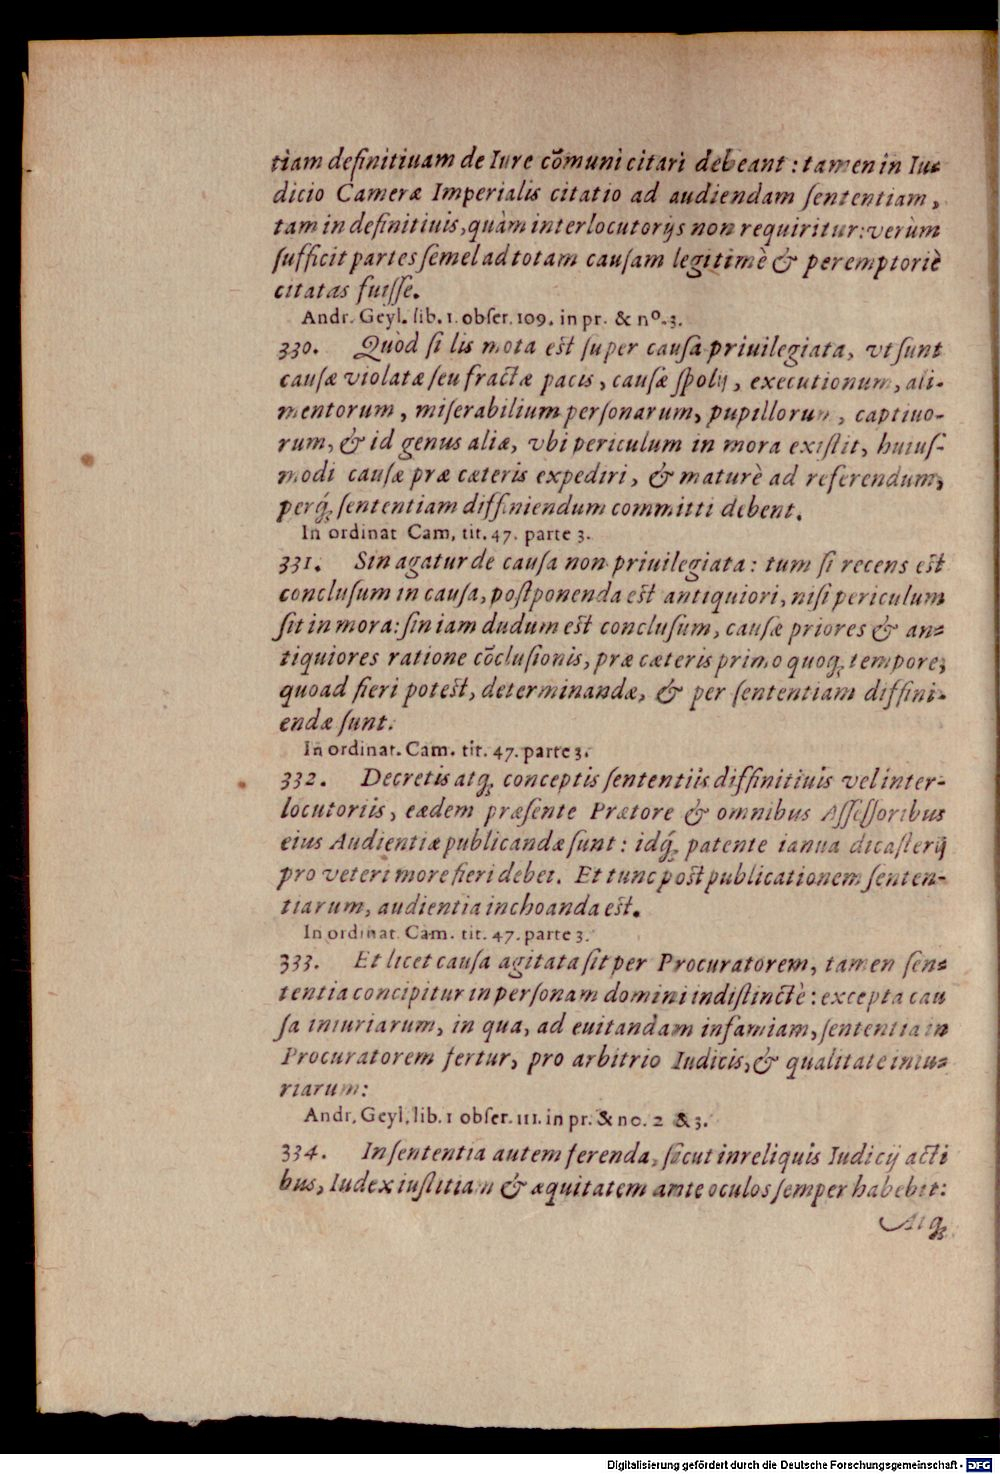 tiam definitiuam de Iure cõmuni citari debeant : tamen in Iu-
dicio Cameræ Imperialis citatio ad audiendam ſententiam,
tam in definitiuis, quàm interlocutorijs non requiritur: verùm
ſufficit partes ſemel ad totam cauſam legitimè & peremptoriè
citatas fuiſſe.
Andr. Geyl. lib. 1. obſer. 109. in pr. & nº. 3.
330. Quòd ſi lis mota eſt ſuper cauſa priuilegiata, vt ſunt
cauſæ violatæ ſeu fractæ pacis, cauſæ ſpolij, executionum, ali-
mentorum, miſerabilium perſonarum, pupillorum, captiuo-
rum, & id genus aliæ, vbi periculum in mora exiſtit, huiuſ-
modi cauſæ præ cæteris expediri, & maturè ad referendum,
perq́; ſententiam diffiniendum committi debent.
In ordinat Cam, tit. 47. parte 3.
331. Sin agatur de cauſa non priuilegiata: tum ſi recens eſt
concluſum in cauſa, poſtponenda eſt antiquiori, niſi periculum
ſit in mora: ſin iam dudum eſt concluſum, cauſæ priores & an-
tiquiores ratione cõcluſionis, præ cæteris primo quoq; tempore,
quoad fieri poteſt, determinandæ, & per ſententiam diffini-
endæ ſunt.
In ordinat. Cam. tit. 47. parte 3.
332. Decretis atq; conceptis ſententiis diffinitiuis vel inter-
locutoriis, eædem præſente Prætore & omnibus Aſſeſſoribus
eius Audientiæ publicandæ ſunt: idq́; patente ianua dicaſterij
pro veteri more fieri debet. Et tunc poſt publicationem ſenten-
tiarum, audientia inchoanda eſt.
In ordinat. Cam. tit. 47. parte 3.
333. Et licet cauſa agitata ſit per Procuratorem, tamen ſen-
tentia concipitur in perſonam domini indiſtinctè: excepta cau
ſa iniuriarum, in qua, ad euitandam infamiam, ſententia in
Procuratorem fertur, pro arbitrio Iudicis, & qualitate iniu-
riarum:
Andr. Geyl. lib. 1 obſer. 111. in pr. & no. 2 & 3.
334. In ſententia autem ferenda, ſicut in reliquis Iudicij acti
bus, Iudex iuſtitiam & æquitatem ante oculos ſemper habebit:
Atq;
Digitalisierung gefördert durch die Deutsche Forschungsgemeinschaft - DFG